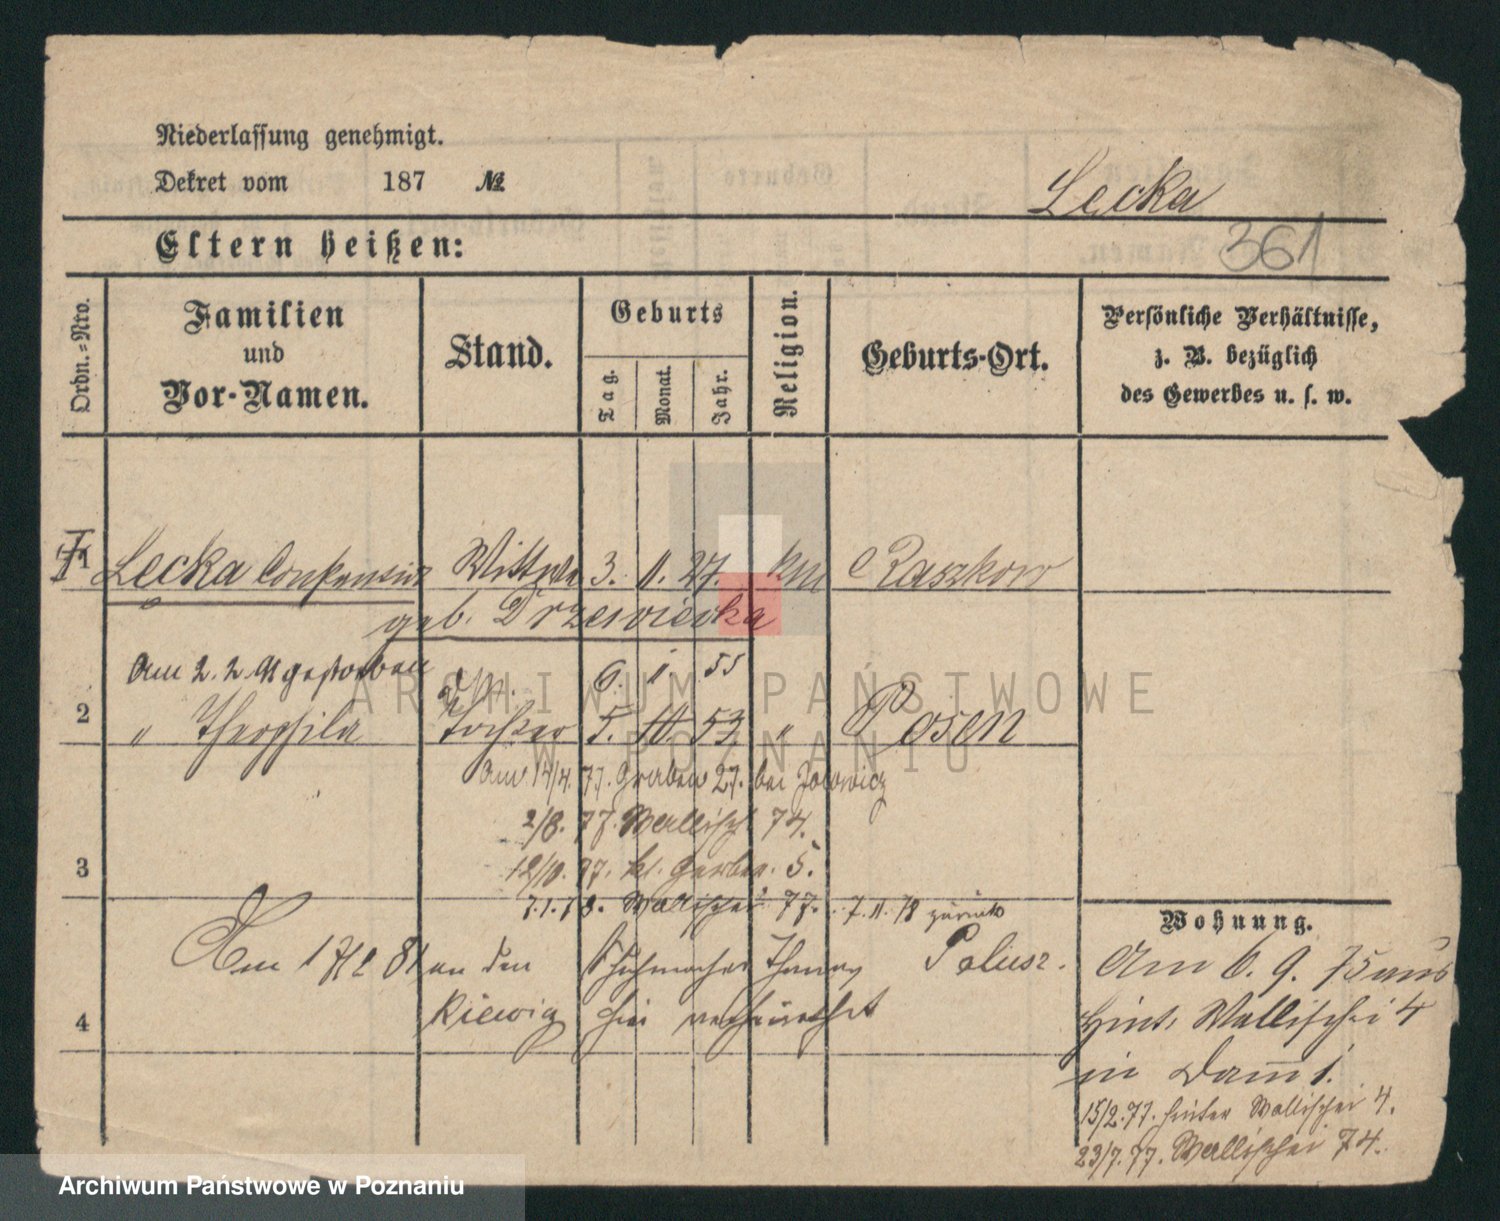 Niederlassung genehmigt.
Dekret vom 187 №
Lecka
361
Eltern heißen:
Ordn.=Nro.
Familien
und
Vor-Namen.
Stand.
Geburts
Tag.
Monat.
Jahr.
Religion.
Geburts-Ort.
Persönliche Verhältnisse,
z. B. bezüglich
des Gewerbes u. s. w.
Lecka Wittwe 3. 11. 27. Raszkow
geb. Drzewiecka
Am 2. 2. 91 gestorben
6. 1. 55
2 " Theophila Tochter 5. 10. 53 " Posen
Am 14/4. 77. Graben 27. bei Jolowicz
2/8. 77. Wallisch 74.
12/10. 77. kl. Gerber. 5.
3
7.1.78. Wallischei 77. 7. 11. 78 zurück
Wohnung.
an den Schuhmacher Thomas
4 hier verheirathet
Am 6. 9. 75 aus
Hint. Wallischei 4
in Damm 1.
15/2. 77. hinter Wallischei 4.
23/7. 77. Wallischei 74.
ARCHIWUM PAŃSTWOWE
W POZNANIU
Archiwum Państwowe w Poznaniu